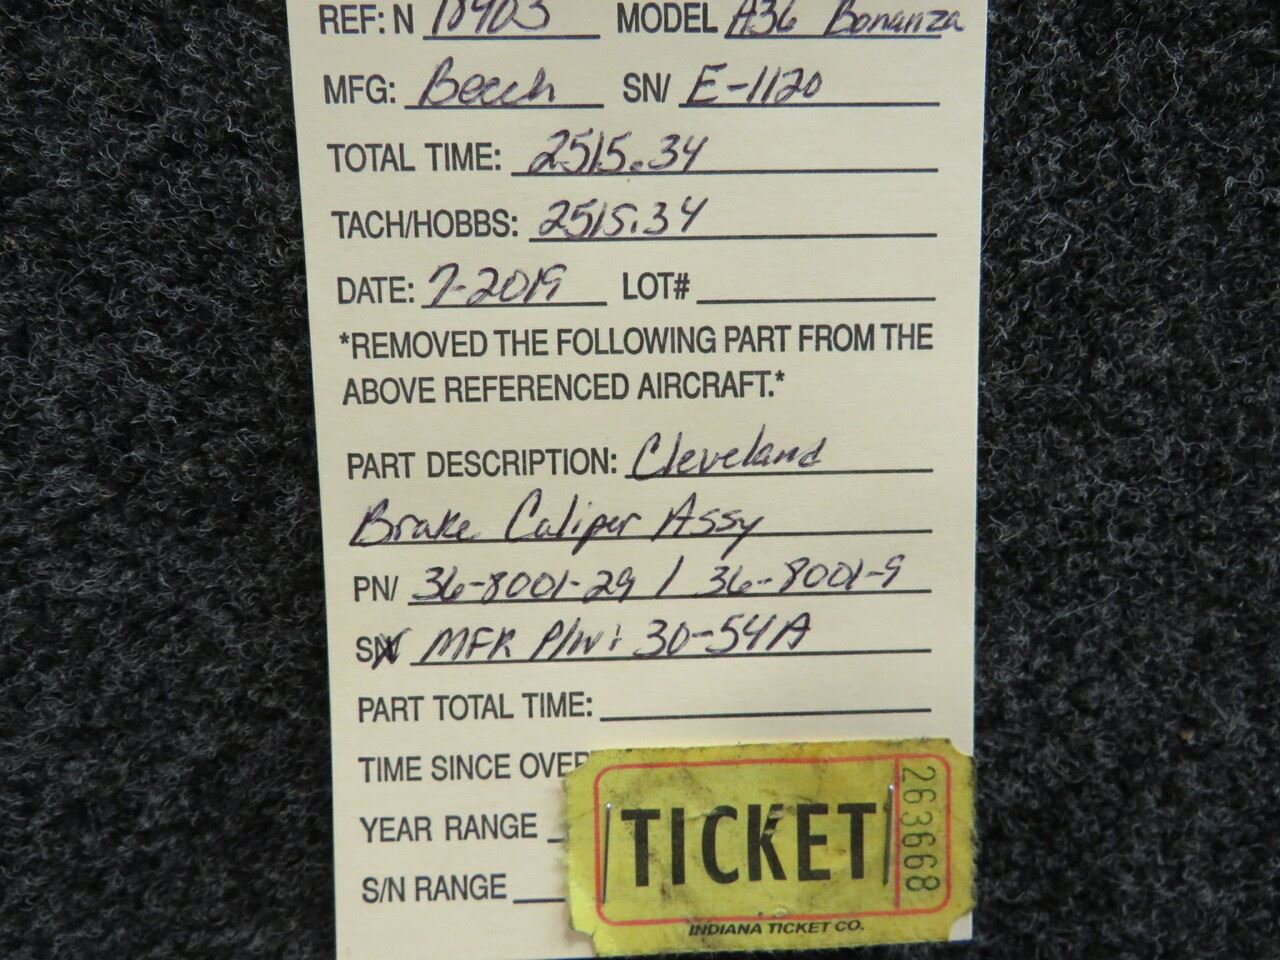 REF: N 18403 MODEL A36 Bonanza
MFG: Beech SN/ E-1120
TOTAL TIME: 2515.34
TACH/HOBBS: 2515.34
DATE: 7-2019 LOT#
*REMOVED THE FOLLOWING PART FROM THE
ABOVE REFERENCED AIRCRAFT.*
PART DESCRIPTION: Cleveland
Brake Caliper Assy
PN/ 36-8001-29 / 36-8001-9
SN MFR P/N: 30-54A
PART TOTAL TIME:
TIME SINCE OVER
YEAR RANGE
S/N RANGE
TICKET
263668
INDIANA TICKET CO.